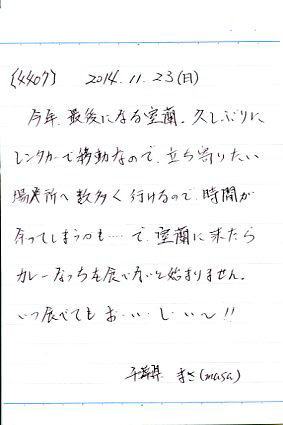 (4407) 2014.11.23(日)
今年、最後になる室蘭。久しぶりに
レンタカーで移動なので、立ち寄りたい
場所へ数多く行けるので、時間が
余ってしまうかも‥‥で、室蘭に来たら
カレーなっちを食べないと始まりません。
いつ食べても お‥い‥し‥い〜!!
千葉県 まさ(masa)